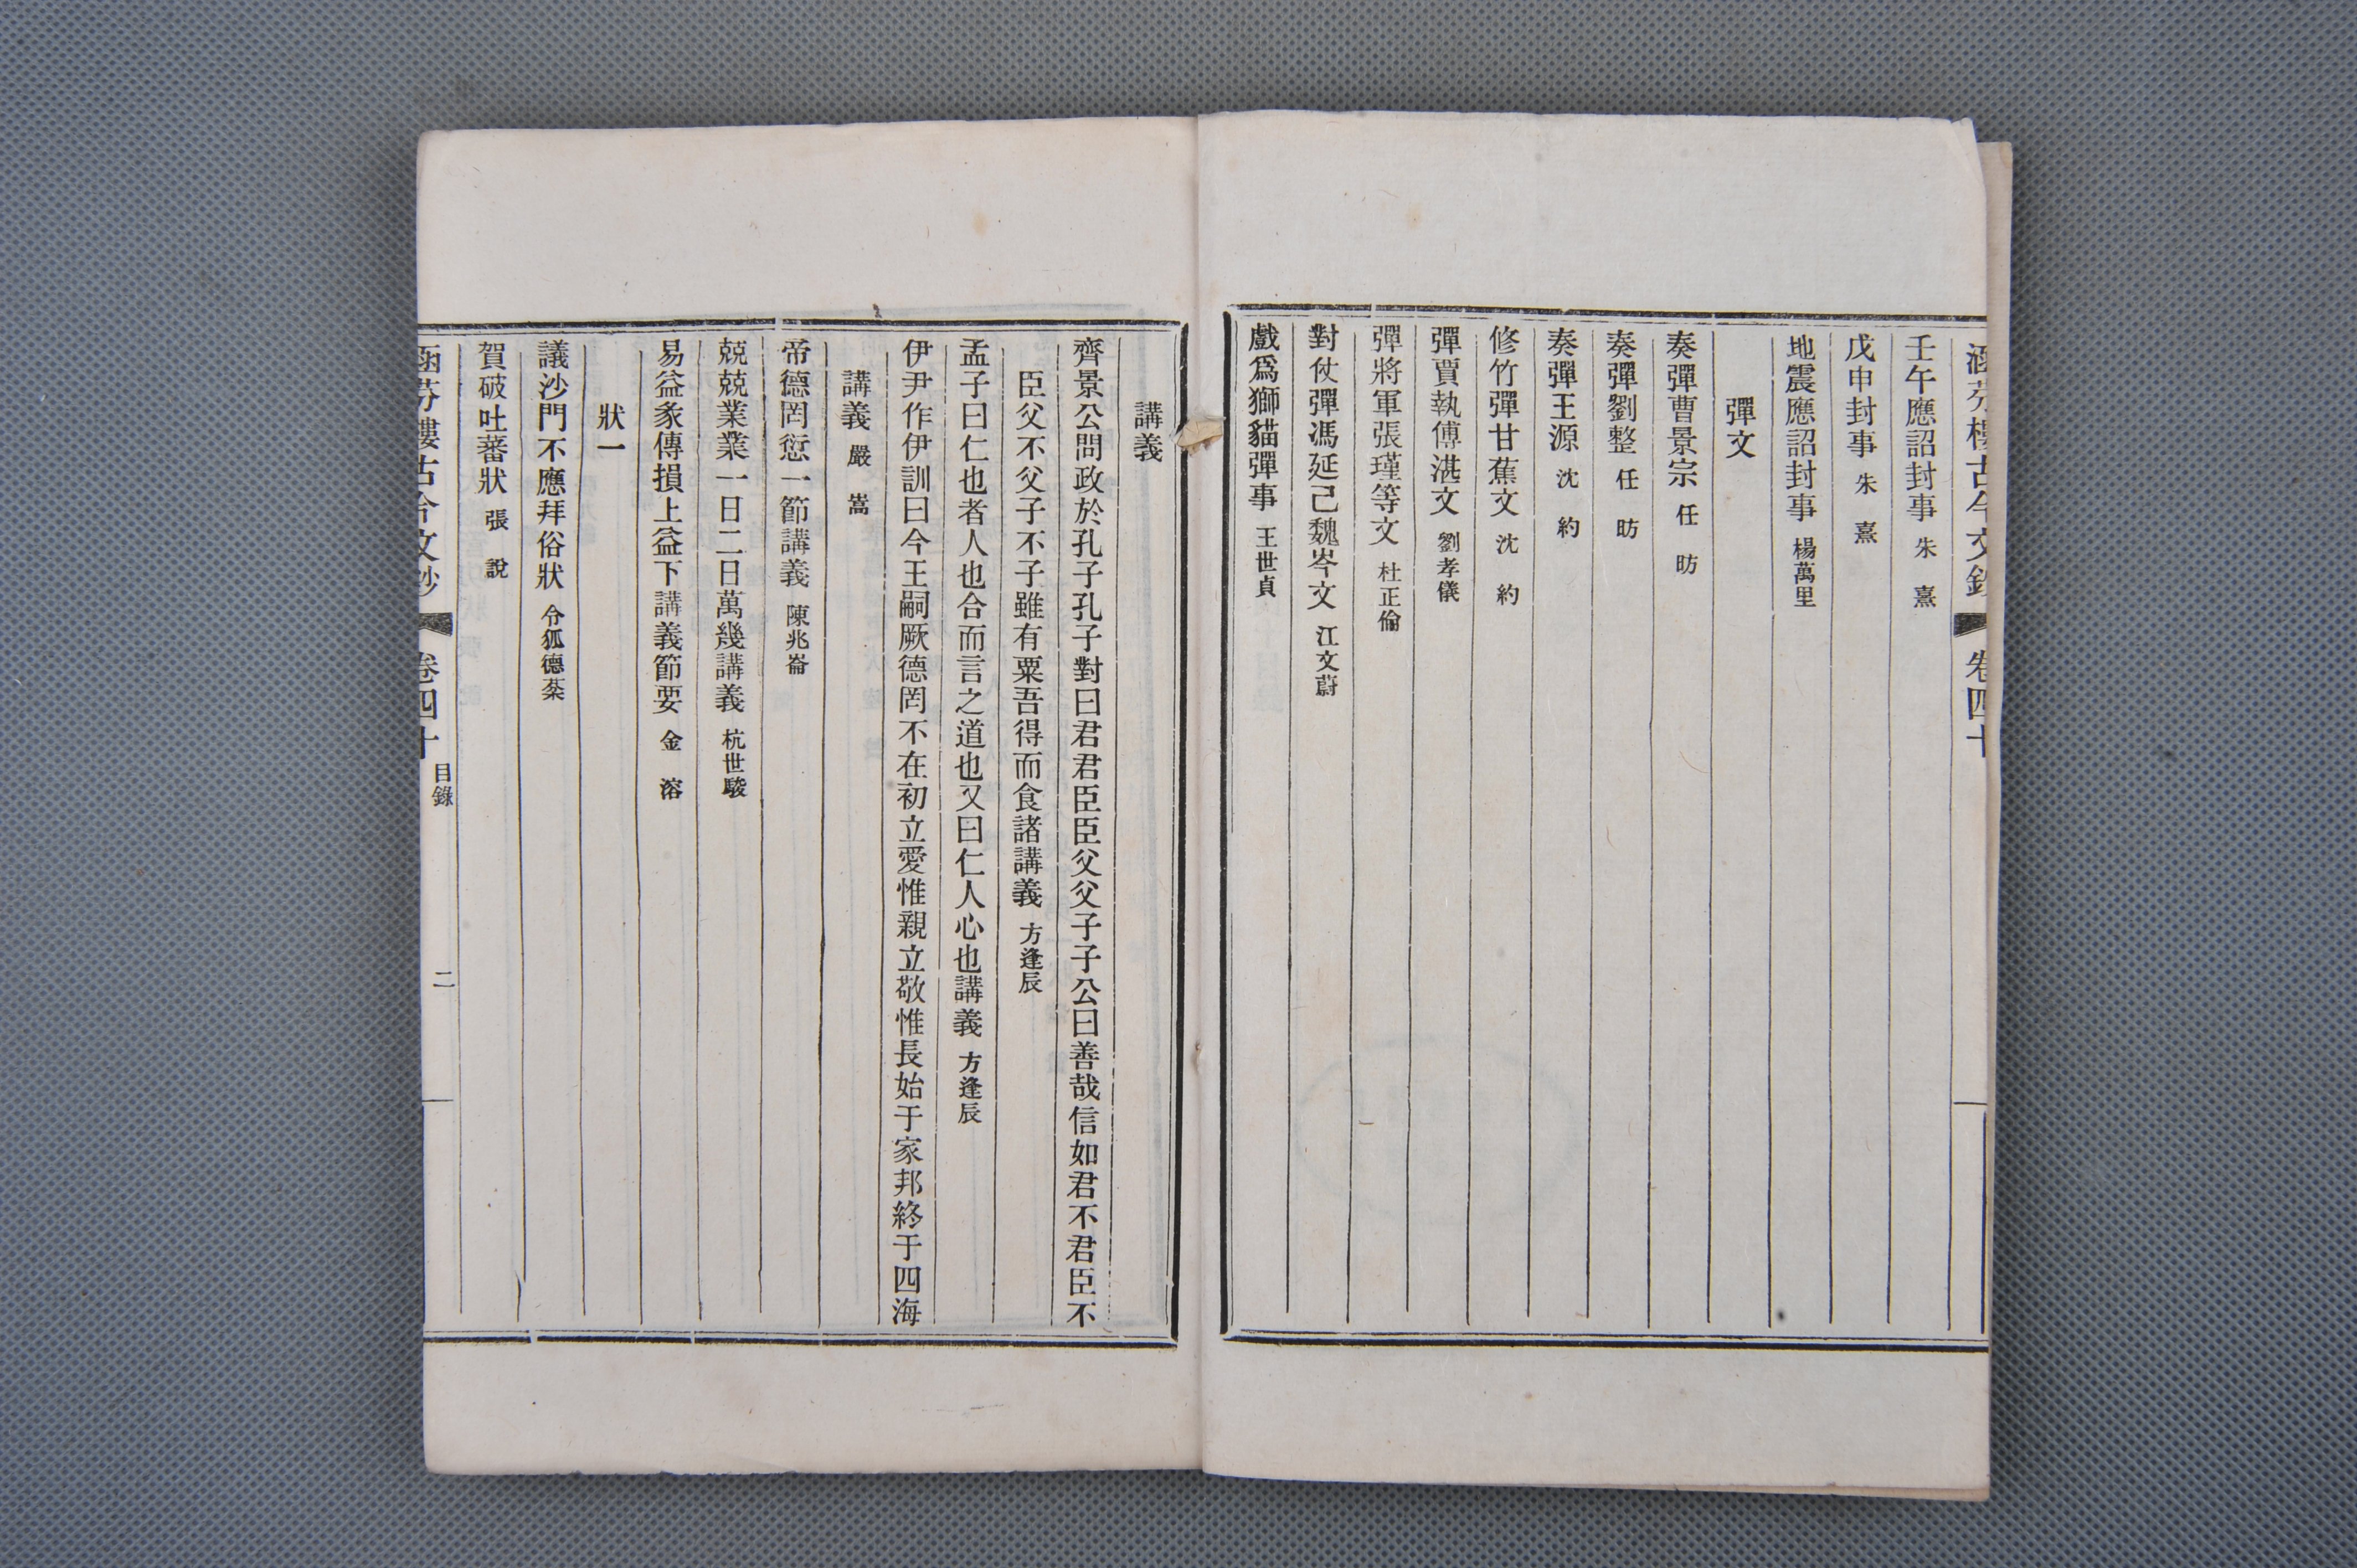 涵芬樓古今文鈔 卷四十
壬午應詔封事 朱熹
戊申封事 朱熹
地震應詔封事 楊萬里
彈文
奏彈曹景宗 任昉
奏彈劉整 任昉
奏彈王源 沈約
修竹彈甘蕉文 沈約
彈賈執傅湛文 劉孝儀
彈將軍張瑾等文 杜正倫
對仗彈馮延己魏岑文 江文蔚
戲爲獅貓彈事 王世貞
講義
齊景公問政於孔子孔子對曰君君臣臣父父子子公曰善哉信如君不君臣不
臣父不父子不子雖有粟吾得而食諸講義 方逢辰
孟子曰仁也者人也合而言之道也又曰仁人心也講義 方逢辰
伊尹作伊訓曰今王嗣厥德罔不在初立愛惟親立敬惟長始于家邦終于四海
講義 嚴嵩
帝德罔愆一節講義 陳兆崙
兢兢業業一日二日萬幾講義 杭世駿
易益彖傳損上益下講義節要 金溶
狀一
議沙門不應拜俗狀 令狐德棻
賀破吐蕃狀 張說
涵芬樓古今文鈔 卷四十 目錄 二